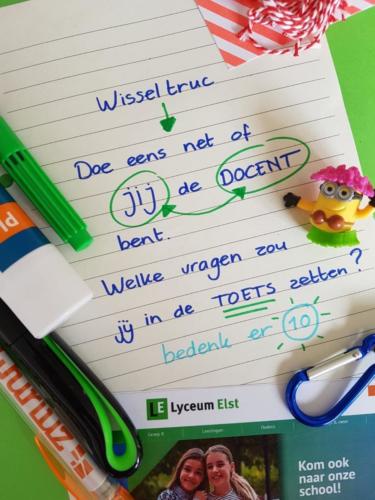 Wisseltruc
Doe eens net of
jij de DOCENT
bent.
Welke vragen zou
jij in de TOETS zetten?
bedenk er 10
LE Lyceum Elst
Groep 8 Leerlingen Ouders
Kom ook
naar onze
school!